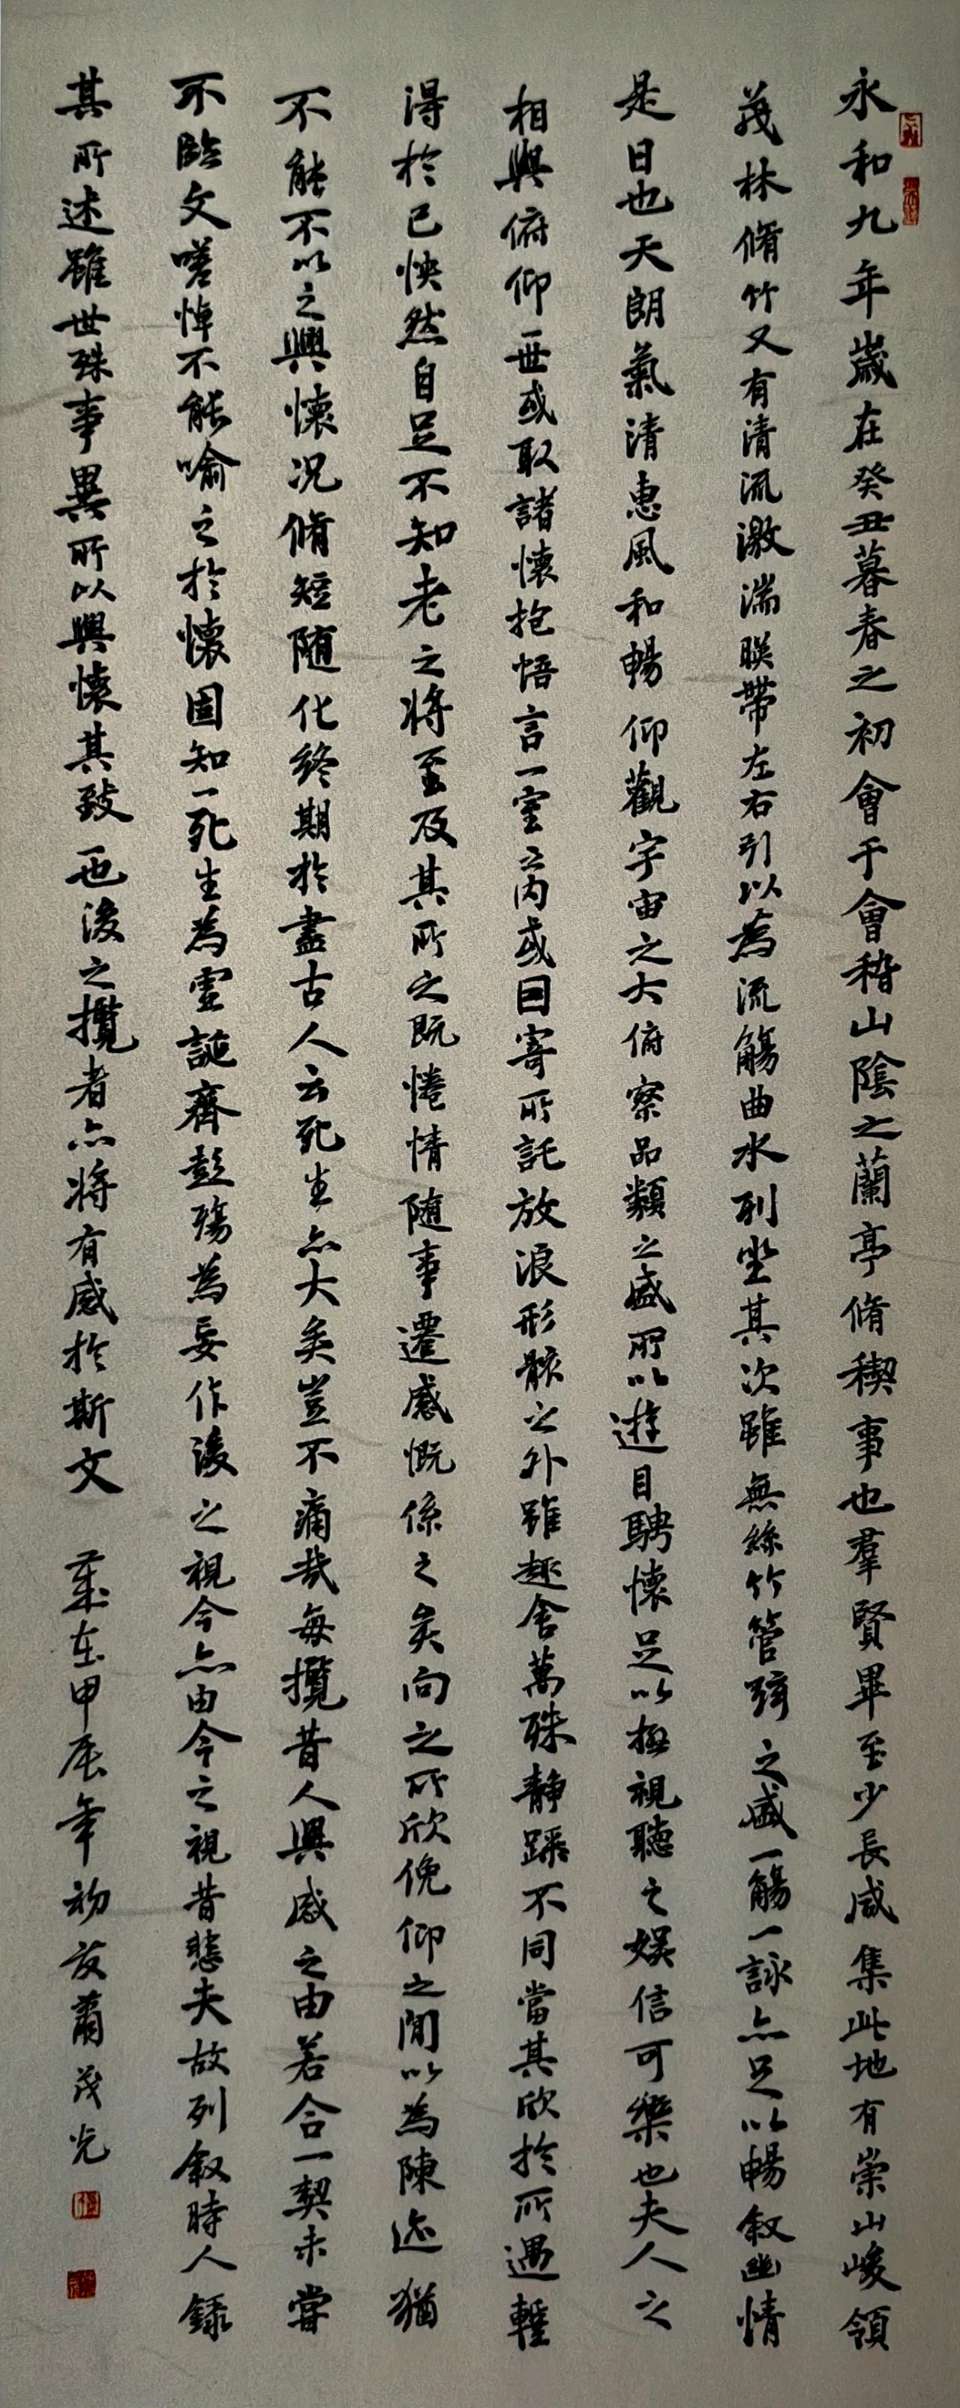 永和九年歲在癸丑暮春之初會于會稽山陰之蘭亭脩稧事也羣賢畢至少長咸集此地有崇山峻領
茂林脩竹又有清流激湍暎帶左右引以為流觴曲水列坐其次雖無絲竹管弦之盛一觴一詠亦足以暢敘幽情
是日也天朗氣清惠風和暢仰觀宇宙之大俯察品類之盛所以遊目騁懷足以極視聽之娛信可樂也夫人之
相與俯仰一世或取諸懷抱悟言一室之內或因寄所託放浪形骸之外雖趣舍萬殊靜躁不同當其欣於所遇蹔
得於己怏然自足不知老之將至及其所之既惓情隨事遷感慨係之矣向之所欣俛仰之閒以為陳迹猶
不能不以之興懷況脩短隨化終期於盡古人云死生亦大矣豈不痛哉每攬昔人興感之由若合一契未嘗
不臨文嗟悼不能喻之於懷固知一死生為虛誕齊彭殤為妄作後之視今亦由今之視昔悲夫故列敘時人錄
其所述雖世殊事異所以興懷其致一也後之攬者亦將有感於斯文 歲在甲辰年初夏蕭茂光